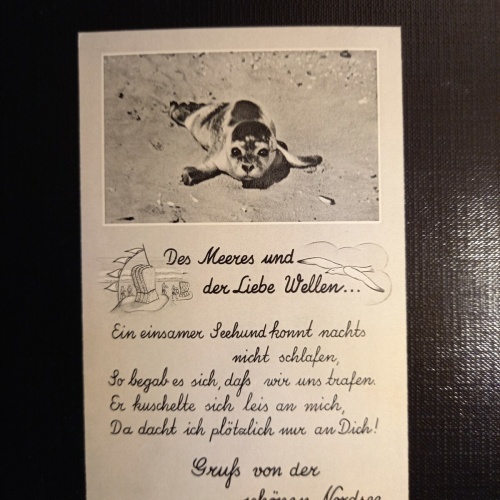 Des Meeres und
der Liebe Wellen...
Ein einsamer Seehund konnt nachts
nicht schlafen,
So begab es sich, daß wir uns trafen.
Er kuschelte sich leis an mich,
Da dacht ich plötzlich nur an Dich!
Gruß von der
schönen Nordsee